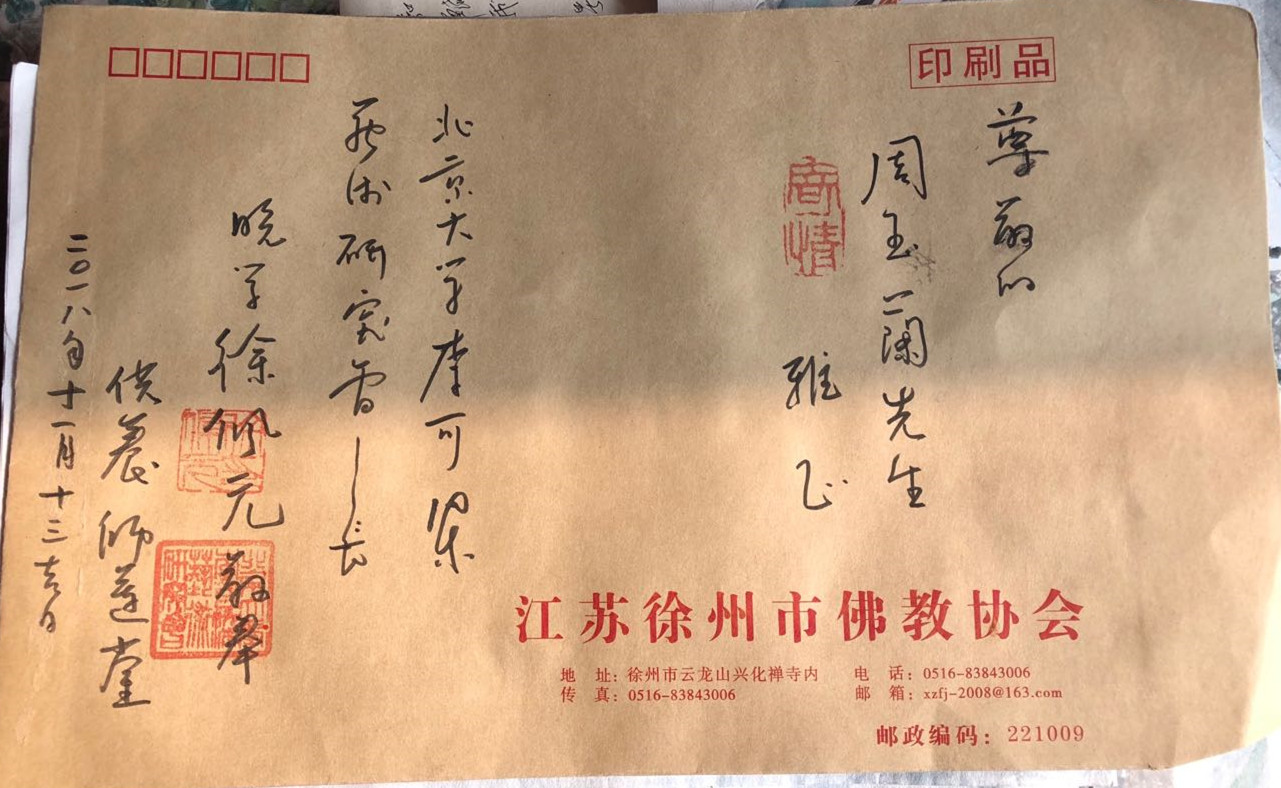 印刷品
尊敬的
周玉兰先生
雅正
北京大学李可染
艺术研究会会长
晚学徐佩元敬奉
供养师莲堂
二〇一八年十一月十三吉日
江苏徐州市佛教协会
地 址：徐州市云龙山兴化禅寺内
电 话：0516-83843006
传 真：0516-83843006
邮 箱：xzfj-2008@163.com
邮政编码：221009